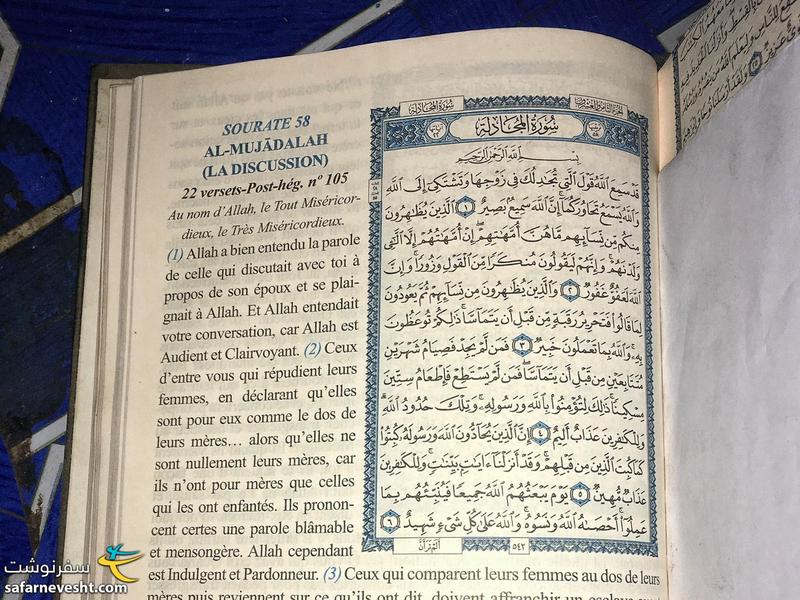 SOURATE 58
AL-MUJĀDALAH
(LA DISCUSSION)
22 versets-Post-hég. nº 105
Au nom d’Allah, le Tout Miséricor-
dieux, le Très Miséricordieux.
(1) Allah a bien entendu la parole
de celle qui discutait avec toi à
propos de son époux et se plai-
gnait à Allah. Et Allah entendait
votre conversation, car Allah est
Audient et Clairvoyant. (2) Ceux
d’entre vous qui répudient leurs
femmes, en déclarant qu’elles
sont pour eux comme le dos de
leurs mères… alors qu’elles ne
sont nullement leurs mères, car
ils n’ont pour mères que celles
qui les ont enfantés. Ils pronon-
cent certes une parole blâmable
et mensongère. Allah cependant
est Indulgent et Pardonneur. (3) Ceux qui comparent leurs femmes au dos de leurs
mères puis reviennent sur ce qu’ils ont dit, doivent affranchir un esclave
الجزء الثامن والعشرون
سورة المجادلة
سُورَةُ المُجَادلة
بِسْمِ اللَّهِ الرَّحْمَٰنِ الرَّحِيمِ
قَدْ سَمِعَ اللَّهُ قَوْلَ الَّتِي تُجَٰدِلُكَ فِي زَوْجِهَا وَتَشْتَكِي إِلَى اللَّهِ
وَاللَّهُ يَسْمَعُ تَحَاوُرَكُمَا إِنَّ اللَّهَ سَمِيعٌ بَصِيرٌ ١ الَّذِينَ يُظَٰهِرُونَ
مِنكُم مِّن نِّسَآئِهِم مَّا هُنَّ أُمَّهَٰتِهِمْ إِنْ أُمَّهَٰتُهُمْ إِلَّا الَّٰٓـِٔي
وَلَدْنَهُمْ وَإِنَّهُمْ لَيَقُولُونَ مُنكَرًا مِّنَ الْقَوْلِ وَزُورًا وَإِنَّ
اللَّهَ لَعَفُوٌّ غَفُورٌ ٢ وَالَّذِينَ يُظَٰهِرُونَ مِن نِّسَآئِهِمْ ثُمَّ يَعُودُونَ
لِمَا قَالُوا فَتَحْرِيرُ رَقَبَةٍ مِّن قَبْلِ أَن يَتَمَآسَّا ذَٰلِكُمْ تُوعَظُونَ
بِهِ وَاللَّهُ بِمَا تَعْمَلُونَ خَبِيرٌ ٣ فَمَن لَّمْ يَجِدْ فَصِيَامُ شَهْرَيْنِ
مُتَتَابِعَيْنِ مِن قَبْلِ أَن يَتَمَآسَّا فَمَن لَّمْ يَسْتَطِعْ فَإِطْعَامُ سِتِّينَ
مِسْكِينًا ذَٰلِكَ لِتُؤْمِنُوا بِاللَّهِ وَرَسُولِهِ وَتِلْكَ حُدُودُ اللَّهِ
وَلِلْكَٰفِرِينَ عَذَابٌ أَلِيمٌ ٤ إِنَّ الَّذِينَ يُحَآدُّونَ اللَّهَ وَرَسُولَهُ كُبِتُوا
كَمَا كُبِتَ الَّذِينَ مِن قَبْلِهِمْ وَقَدْ أَنزَلْنَآ ءَايَٰتٍ بَيِّنَٰتٍ وَلِلْكَٰفِرِينَ
عَذَابٌ مُّهِينٌ ٥ يَوْمَ يَبْعَثُهُمُ اللَّهُ جَمِيعًا فَيُنَبِّئُهُم بِمَا
عَمِلُوا أَحْصَىٰهُ اللَّهُ وَنَسُوهُ وَاللَّهُ عَلَىٰ كُلِّ شَيْءٍ شَهِيدٌ ٦
٥٤٢
أَلَمْ تَرَ أَنَّ
سفرنوشت
safarnevesht.com